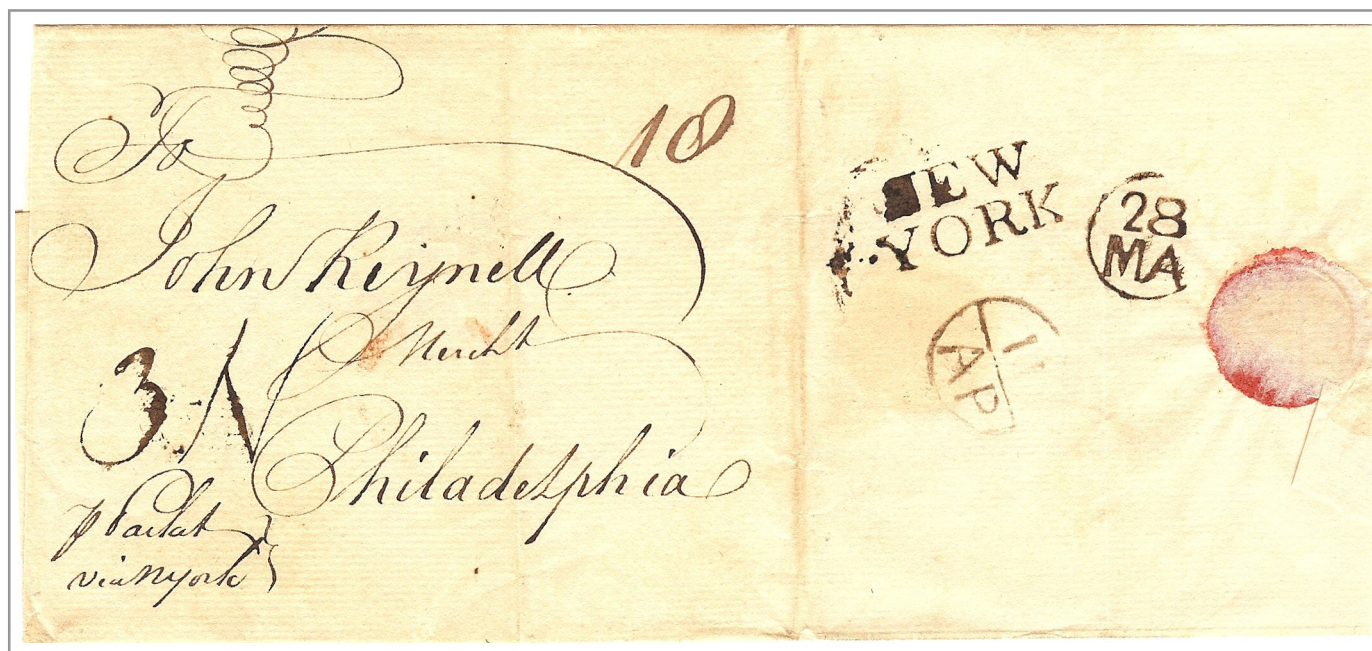 To
18
John Reynell
Mercht
3 N
Philadelphia
p Packet
via NYork
NEW
YORK
28
MA
AP